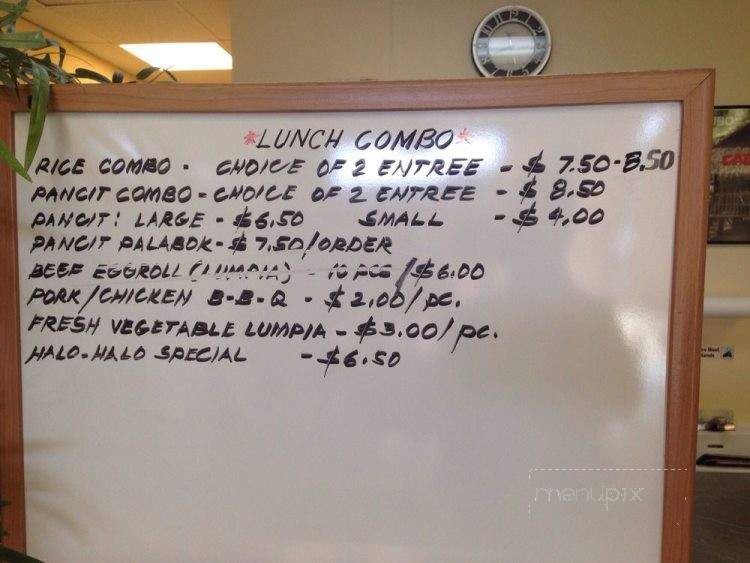 *LUNCH COMBO*
RICE COMBO - CHOICE OF 2 ENTREE - $ 7.50-8.50
PANCIT COMBO - CHOICE OF 2 ENTREE - $ 8.50
PANCIT: LARGE - $6.50 SMALL - $ 4.00
PANCIT PALABOK - $7.50/ORDER
BEEF EGGROLL (LUMPIA) - 10 PCS/$6.00
PORK/CHICKEN B-B-Q - $2.00/pc.
FRESH VEGETABLE LUMPIA - $3.00/pc.
HALO-HALO SPECIAL - $6.50
menupix